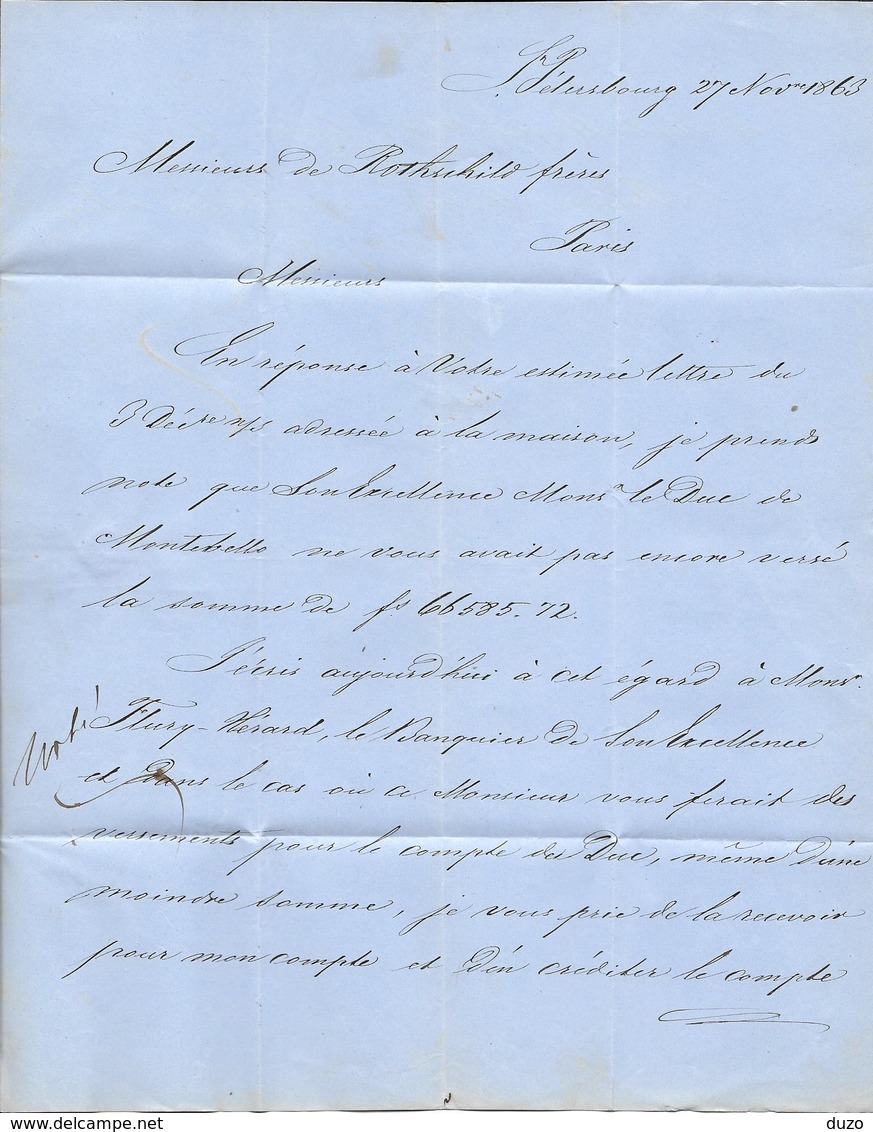 St Pétersbourg 27 Novre 1863
Messieurs de Rothschild frères
Paris
Messieurs
En réponse à Votre estimée lettre du
3 Décre n/s adressée à la maison, je prends
note que Son Excellence Monsr le Duc de
Montebello ne vous avait pas encore versé
la somme de fs 66585.72.
J'écris aujourd'hui à cet égard à Monsr
Flury-Hérard, le Banquier de Son Excellence
Noté
et dans le cas où ce Monsieur vous ferait des
versements pour le compte du Duc, même d'une
moindre somme, je vous prie de la recevoir
pour mon compte et d'en créditer le compte
www.delcampe.net
duzo